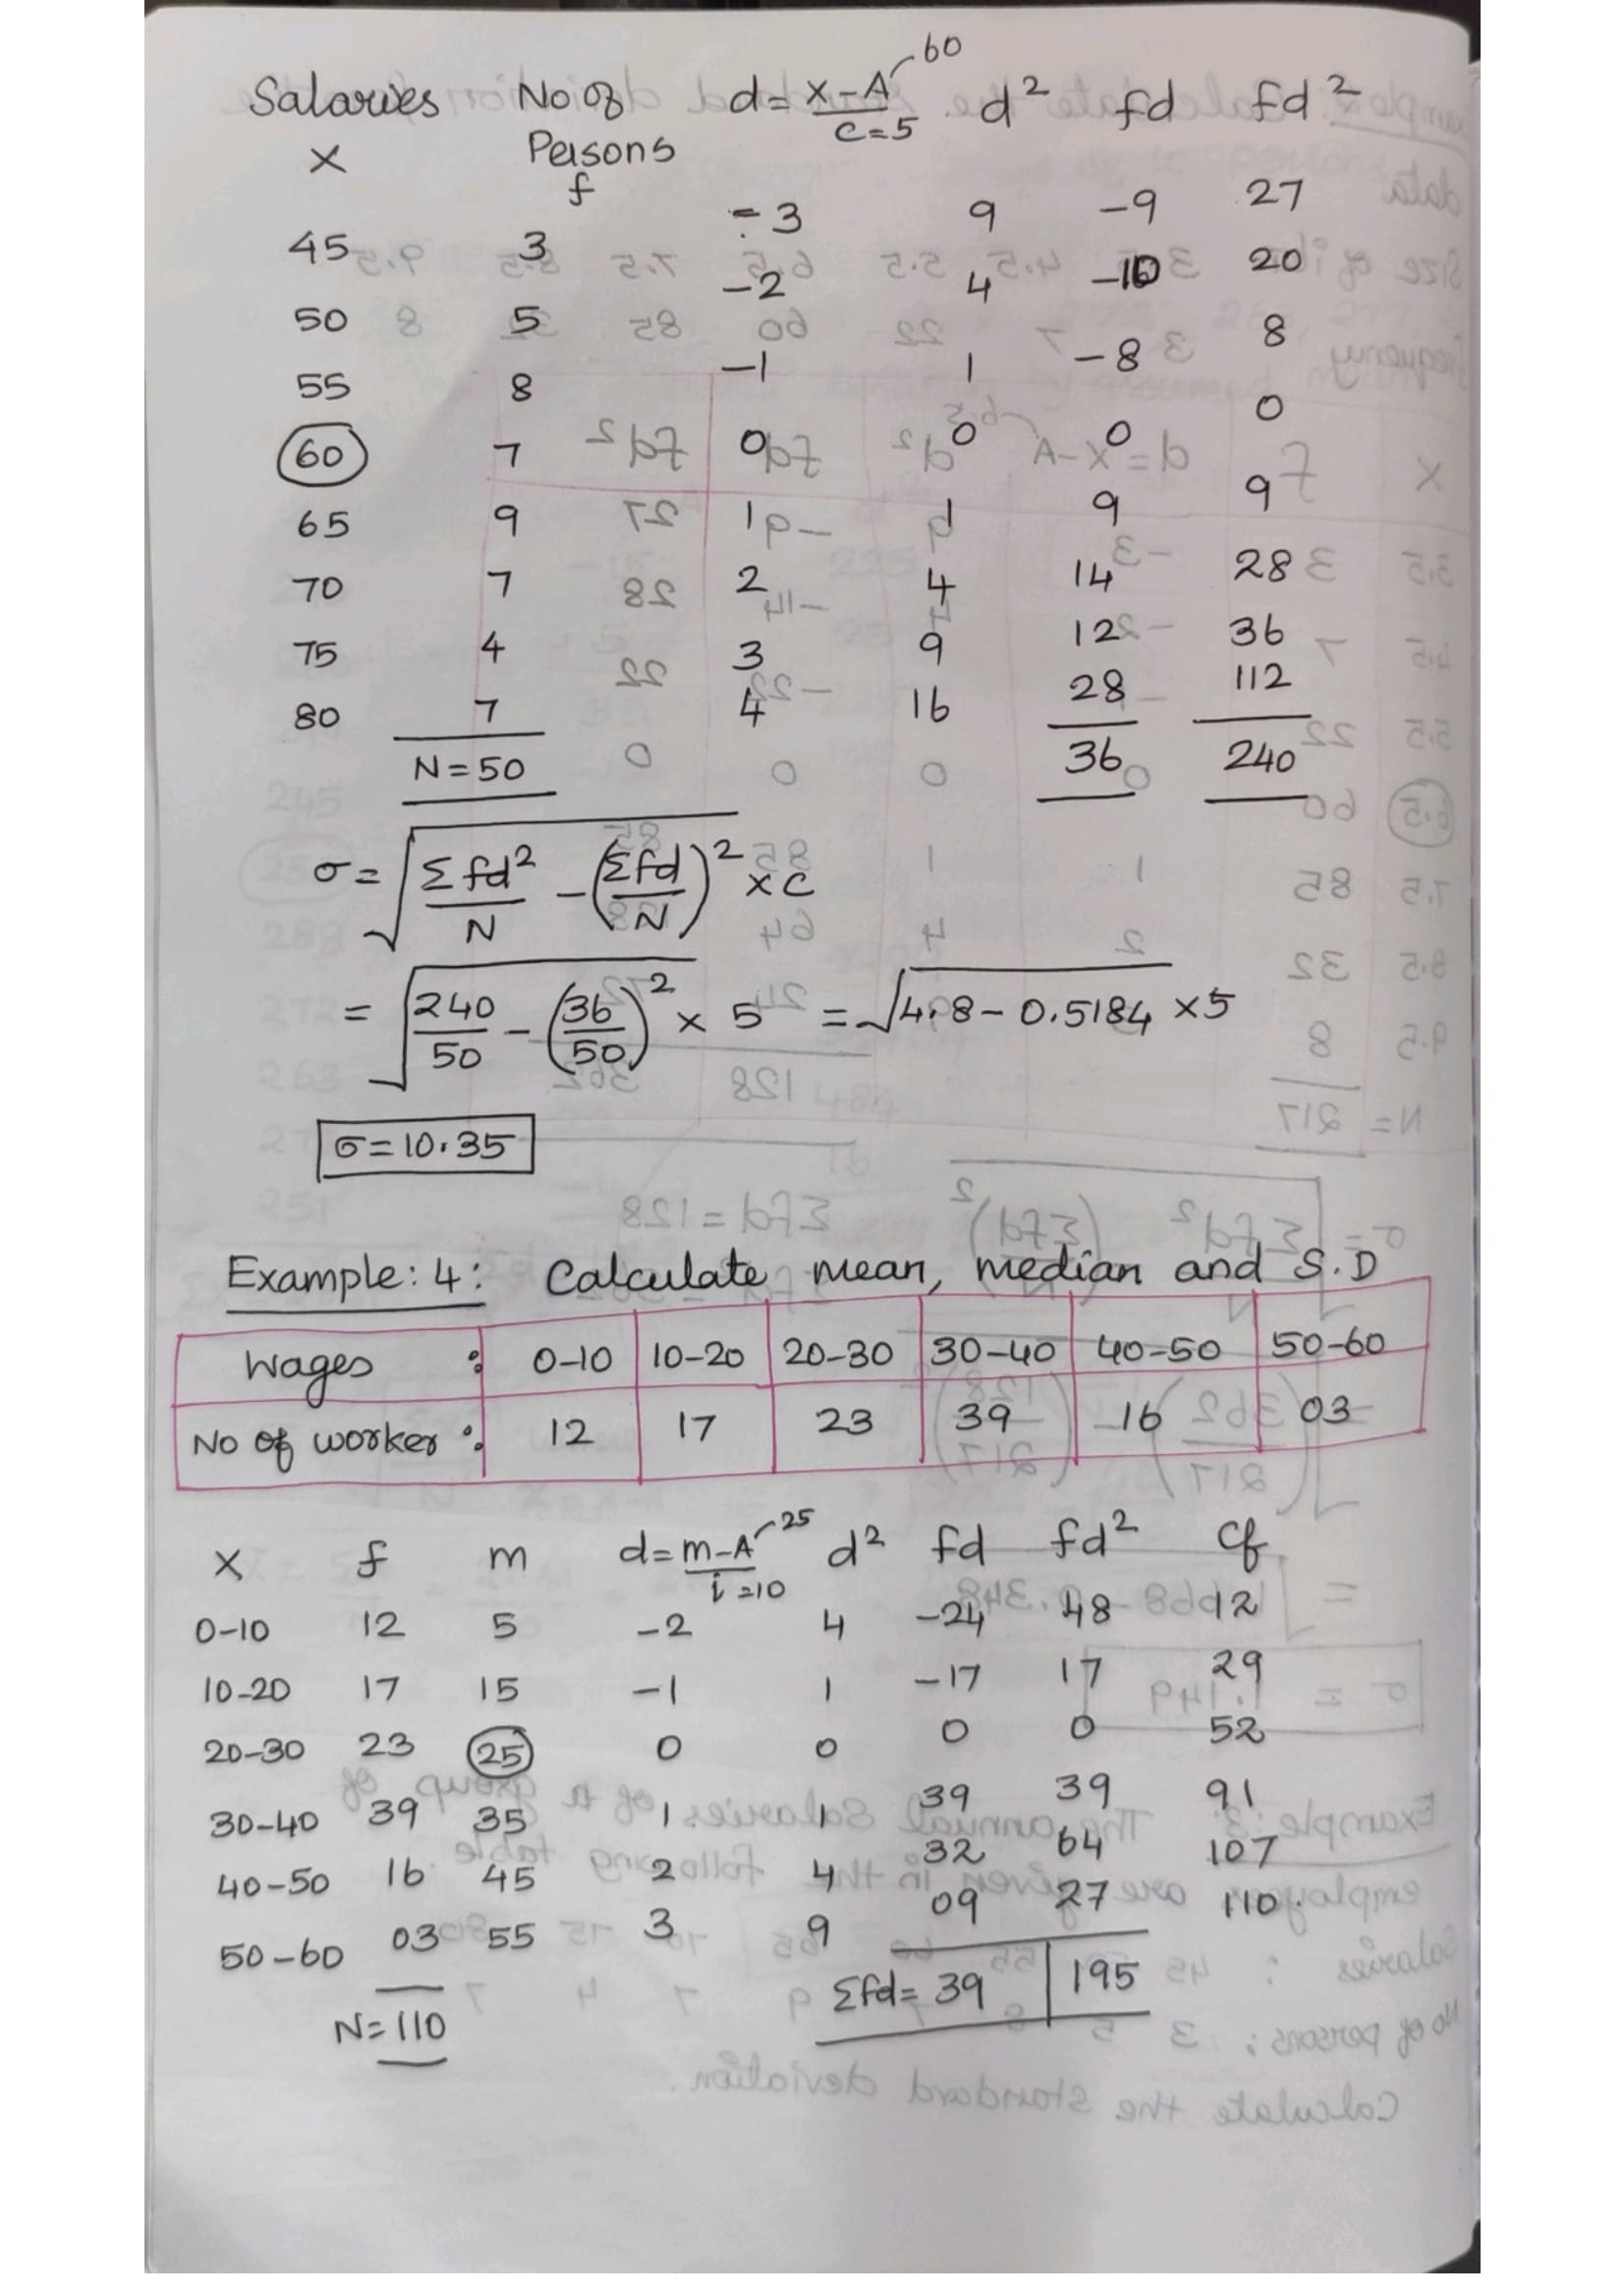 Salaries No of d = x-A 60 d² fd fd²
X Persons C=5
f
45 3 -3 9 -9 27
50 5 -2 4 -10 20
55 8 -1 1 -8 8
60 7 0 0 0 0
65 9 1 1 9 9
70 7 2 4 14 28
75 4 3 9 12 36
80 7 4 16 28 112
N=50 36 240
σ = √(Σfd²/N - (Σfd/N)²) × C
= √(240/50 - (36/50)²) × 5 = √(4.8 - 0.5184) × 5
σ = 10.35
Example: 4: Calculate mean, median and S.D
Wages : 0-10 10-20 20-30 30-40 40-50 50-60
No of worker : 12 17 23 39 16 03
X f m d = m-A 25 d² fd fd² Cf
i=10
0-10 12 5 -2 4 -24 48 12
10-20 17 15 -1 1 -17 17 29
20-30 23 25 0 0 0 0 52
30-40 39 35 1 1 39 39 91
40-50 16 45 2 4 32 64 107
50-60 03 55 3 9 09 27 110
N=110 Σfd= 39 195